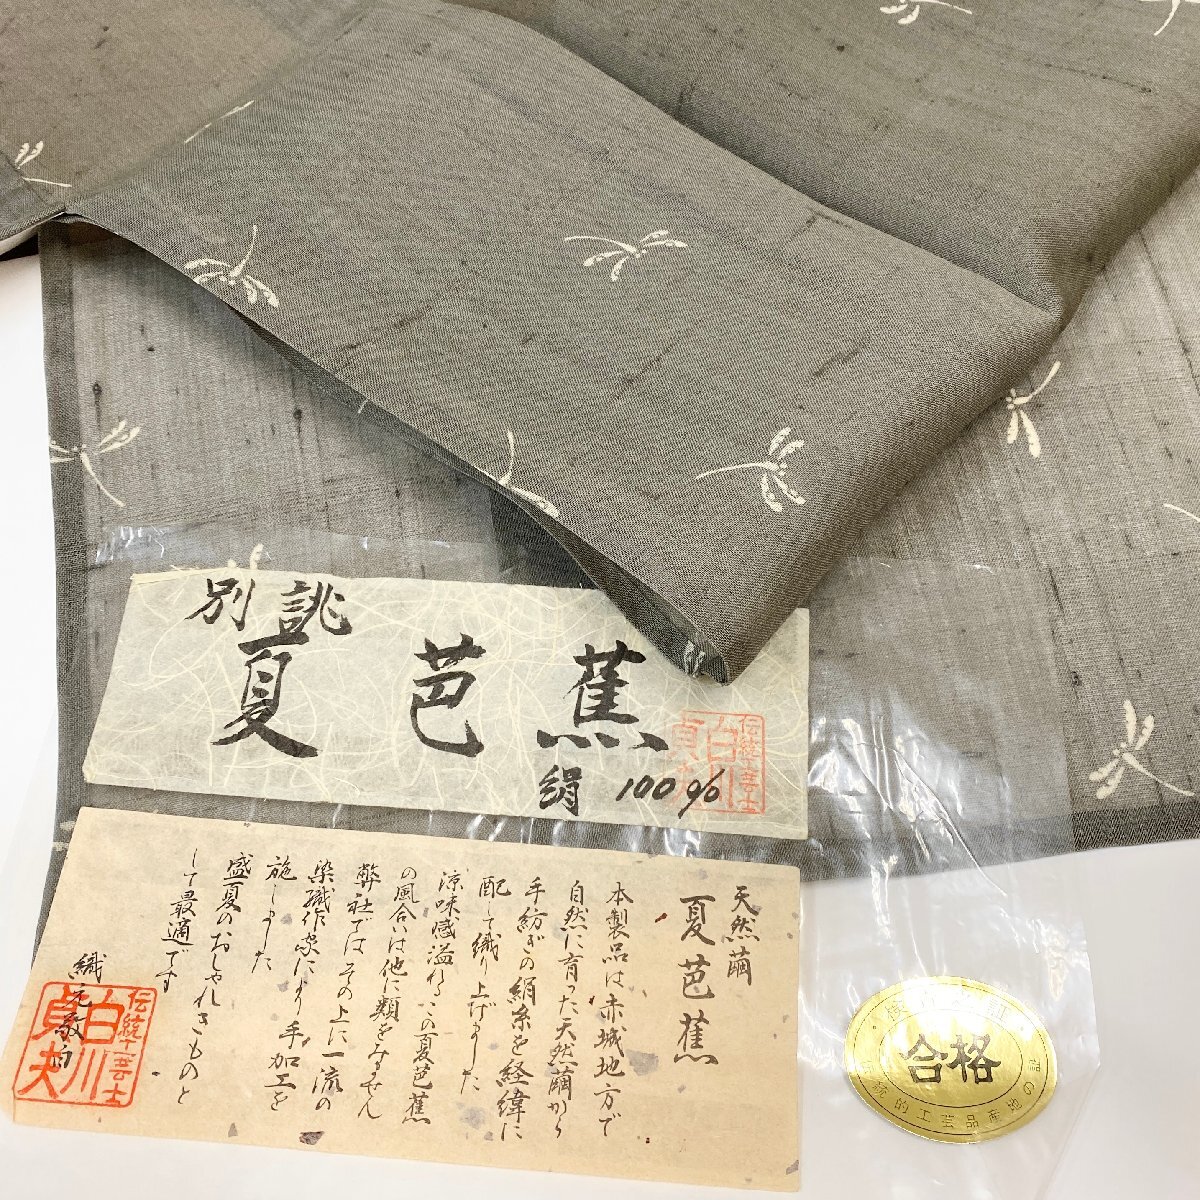 別誂
夏芭蕉
絹 100%
伝統工芸士
白川
貞夫
天然繭
夏芭蕉
本製品は赤城地方で
自然に育った天然繭から
手紡ぎの絹糸を経緯に
配して織り上げました
涼味感溢れるこの夏芭蕉
の風合いは他に類をみません
弊社ではその上に一流の
染織作家により手加工を
施しました
盛夏のおしゃれきものと
して最適です
織元敬白
伝統工芸士
白川
貞夫
合格
伝統的工芸品産地の証